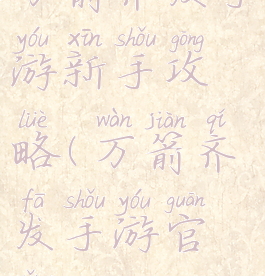 yóu xīn shǒu gōng
游新手攻
lüè wàn jiàn qí
略(万箭齐
fā shǒu yóu guān
发手游官